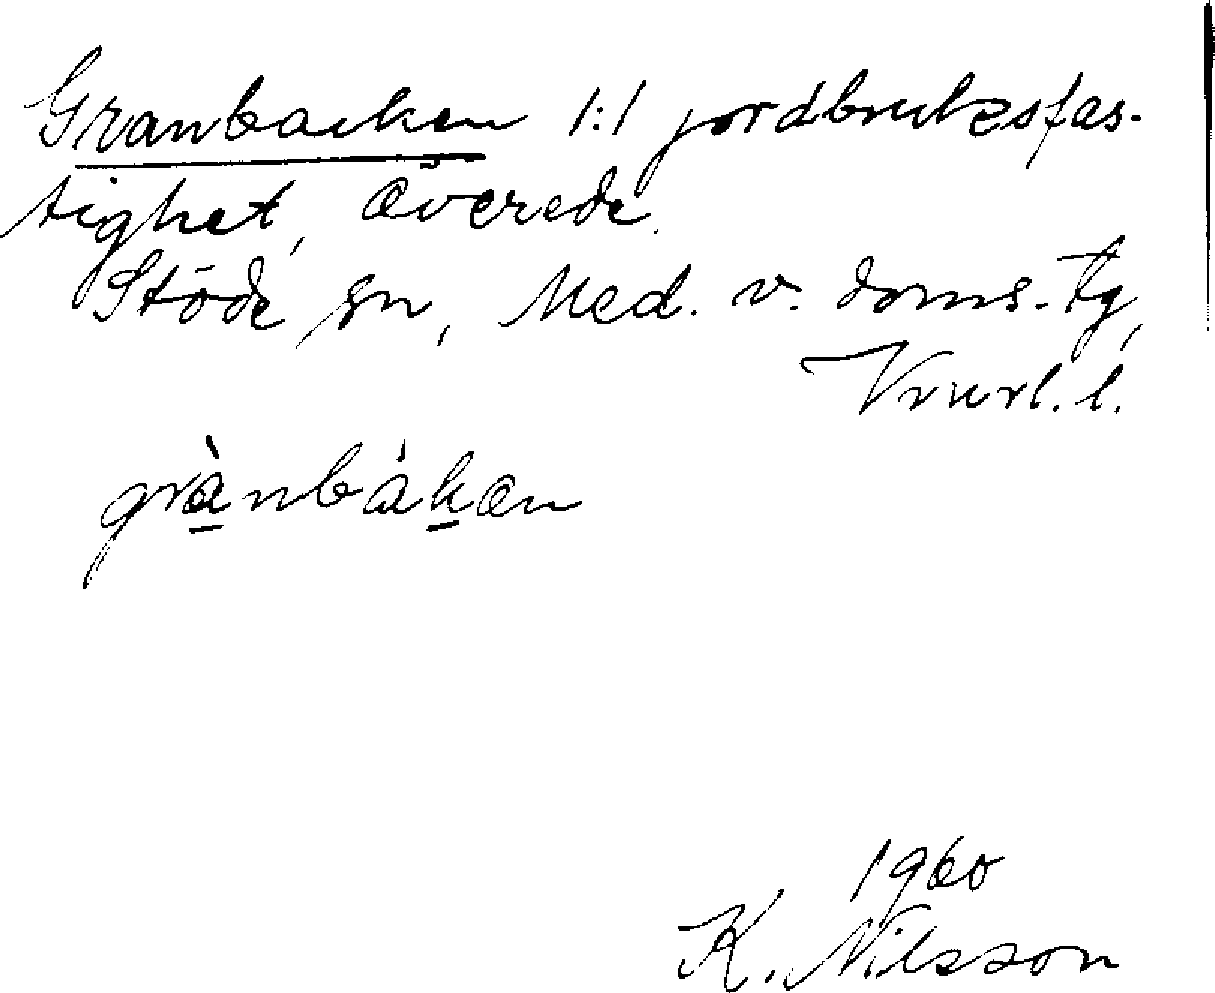 Granbacken 1:1 jordbruksfas-
tighet, Överede.
Stöde sn, Med. v. doms. tg,
Vnorl. l.
grànbákæn
1960
K. Nilsson